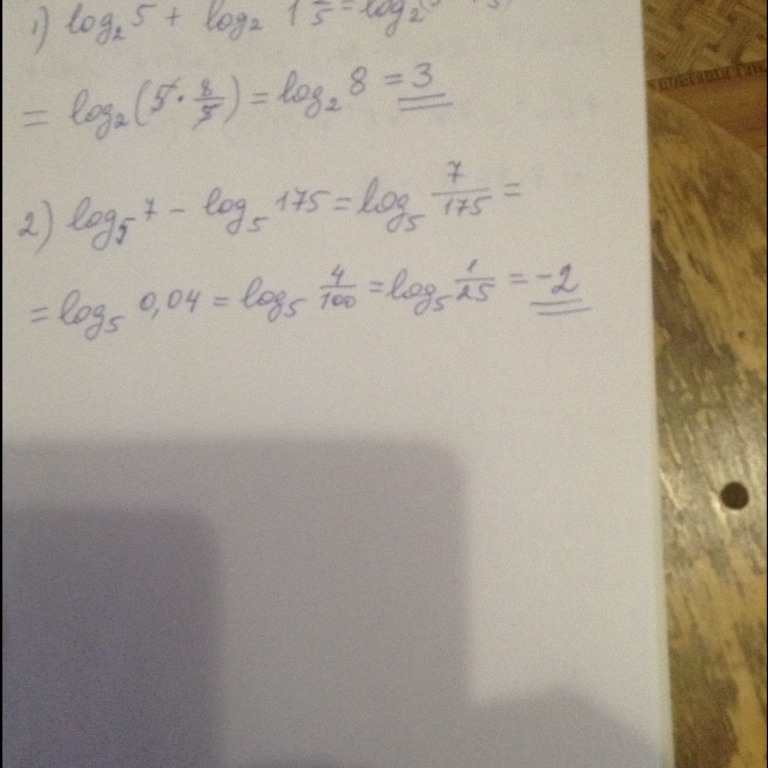 1) log₂ 5 + log₂ 1 /5 = log₂
= log₂(5 · 8/5) = log₂ 8 = 3
2) log₅ 7 − log₅ 175 = log₅ 7/175 =
= log₅ 0,04 = log₅ 4/100 = log₅ 1/25 = −2